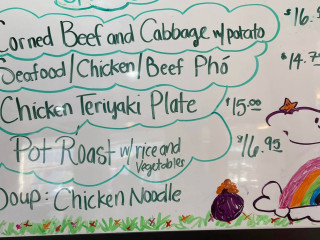 Corned Beef and Cabbage w/ potato $16.
Seafood/Chicken/Beef Phó $14.
Chicken Teriyaki Plate $15.00
Pot Roast w/ rice and Vegetables $16.95
Soup: Chicken Noodle